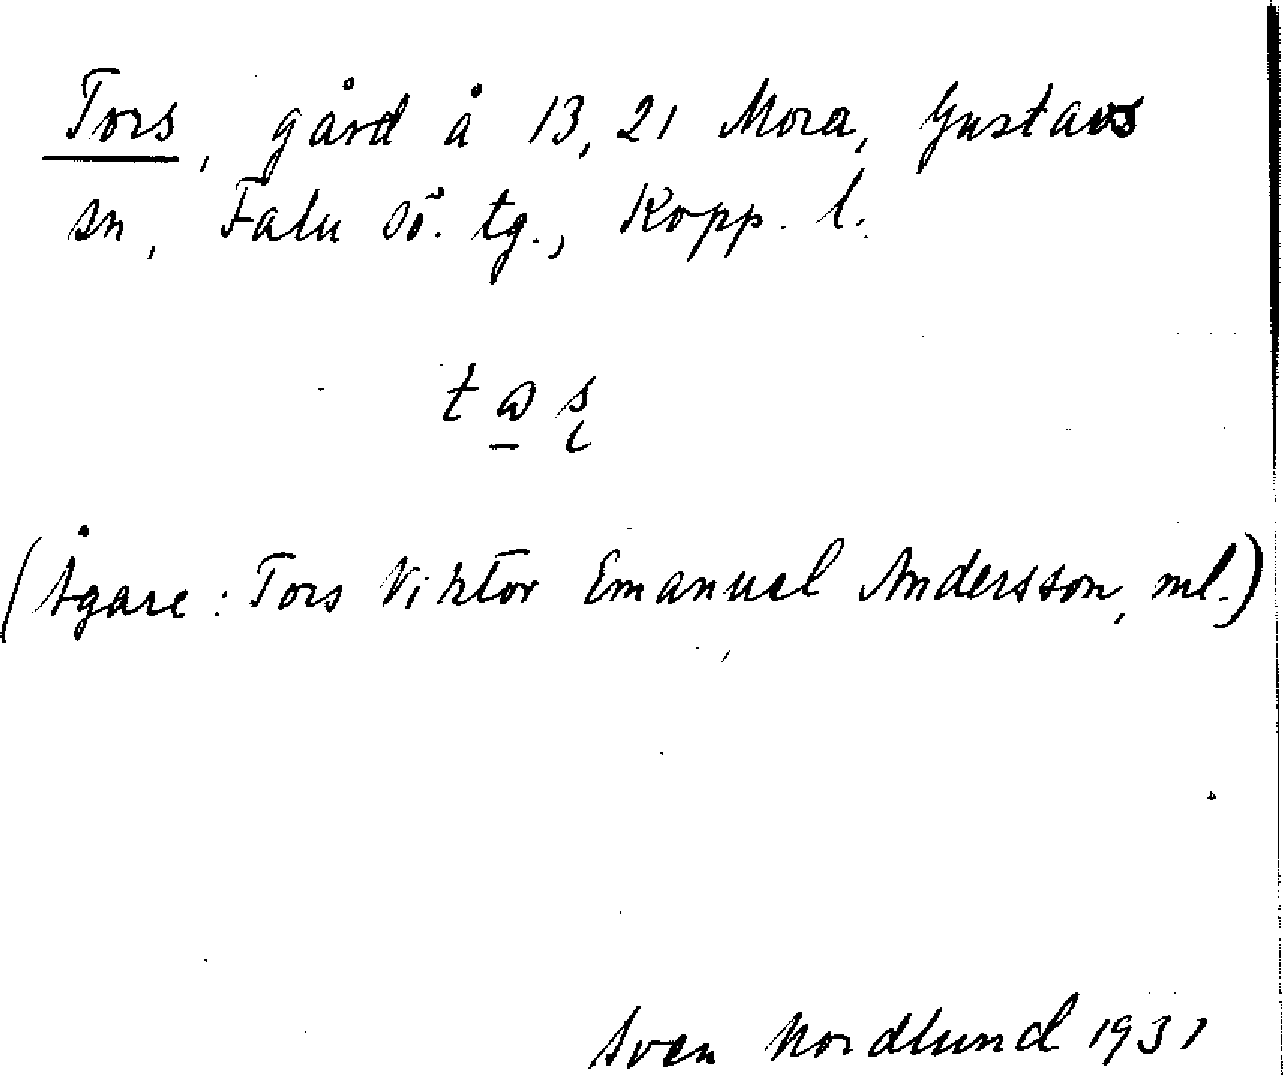 Tors, gård å 13, 21 Mora, Gustavs
sn, Falu sö. tg., Kopp. l.
(Ägare: Tors Viktor Emanuel Andersson, ml.)
Sven Nordlund 1931